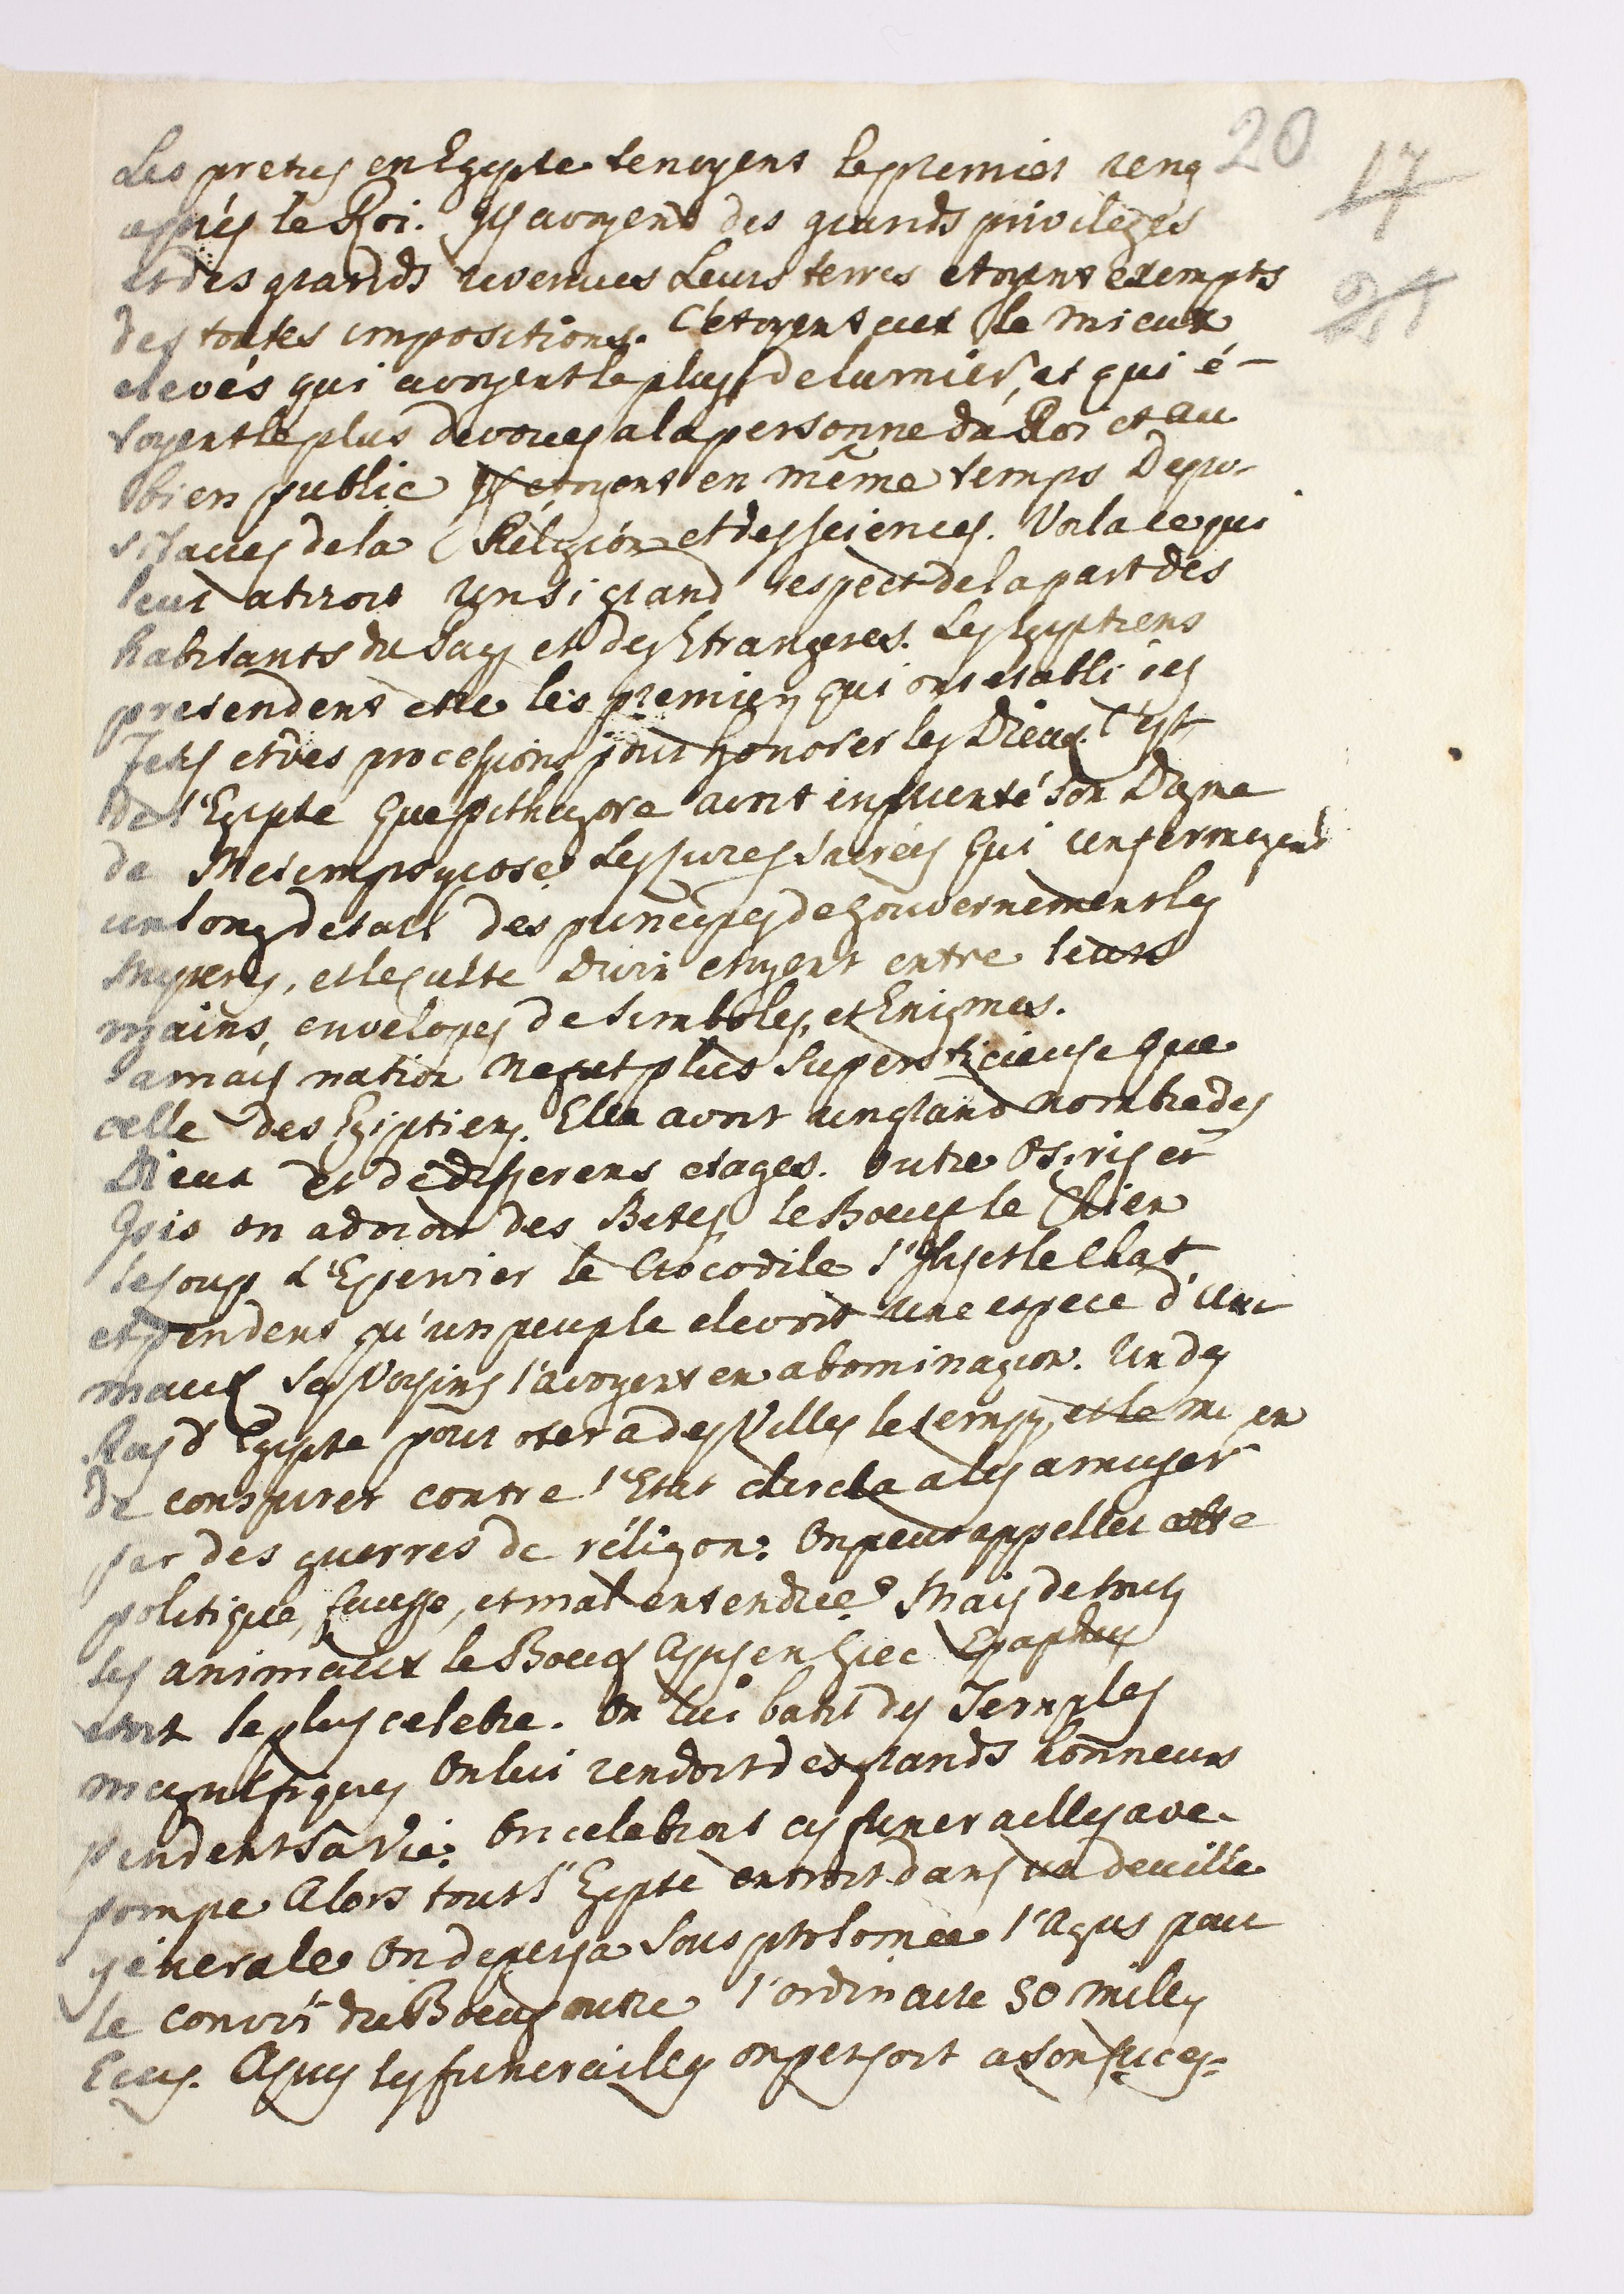 20
17
21
Les pretres en Egypte tenoyent le premier reng
aprés le Roi. Ils avoyent des grands privileges
et des grands revenues Leurs terres etoyent exempts
des toutes impositions. C'étoyent eux le mieux
elevés qui avoyent le plus de lumier, et qui é-
toyent le plus devoues a la personne du Roi et au
bien public Ils étoyent en même temps Depo-
sitaires de la Réligion et des sciences. Voila ce qui
leur atiroit un si grand respect de la part des
habitants du Pays et des Etrangeres. Les Egyptiens
pretendent etre les premiers qui ont etabli les
Fetes et des processions pour honorer les Dieux. C'est
de l'Egipte que Pithagore avoit imprunté son Dogme
de Metempsycose. Les livres sacrées qui renfermoyent
un long detail des principes de gouvernement les
mysteres, et le culte divin etoyent entre leurs
mains, envelopes de simboles, et Enigmes.
Jamais nation ne fut plus Supersticieuse que
celle des Egiptiens. Elle avoit un grand nombre des
Dieux et de differens etages. Outre Osiris et
Isis on adoroit des Betes, le Boeuf le Chien
le Loup l'Epervier le Crocodile l'Ibis et le Chat
et pendent qu'un peuple elevoit une espece d'ani-
maux ses Voysins l'avoyent en abominacion. Un des
Roys d'Egypte pour oter a des Villes le temps, et le
de conspirer contre l'Etat chercha a les amuser
par des guerres de réligion. On peut appeller cette
politique, fausse, et mal entendue. Mais de tous
les animaux le Boeuf Apis en Grec Epaphus
etoit le plus celebre. On lui batit des Temples
magnifiques On lui rendoit des grands honneurs
pendent sa vie. On celebroit ces funerailles avec
pompe Alors tout l'Egipte entroit dans un deuille
génerale On depensa sous Ptolomee l'Agus pour
le convoi du Boeuf outre l'ordinaire 50 milles
Ecus. Apres les funerailles on pensoit a son succes-